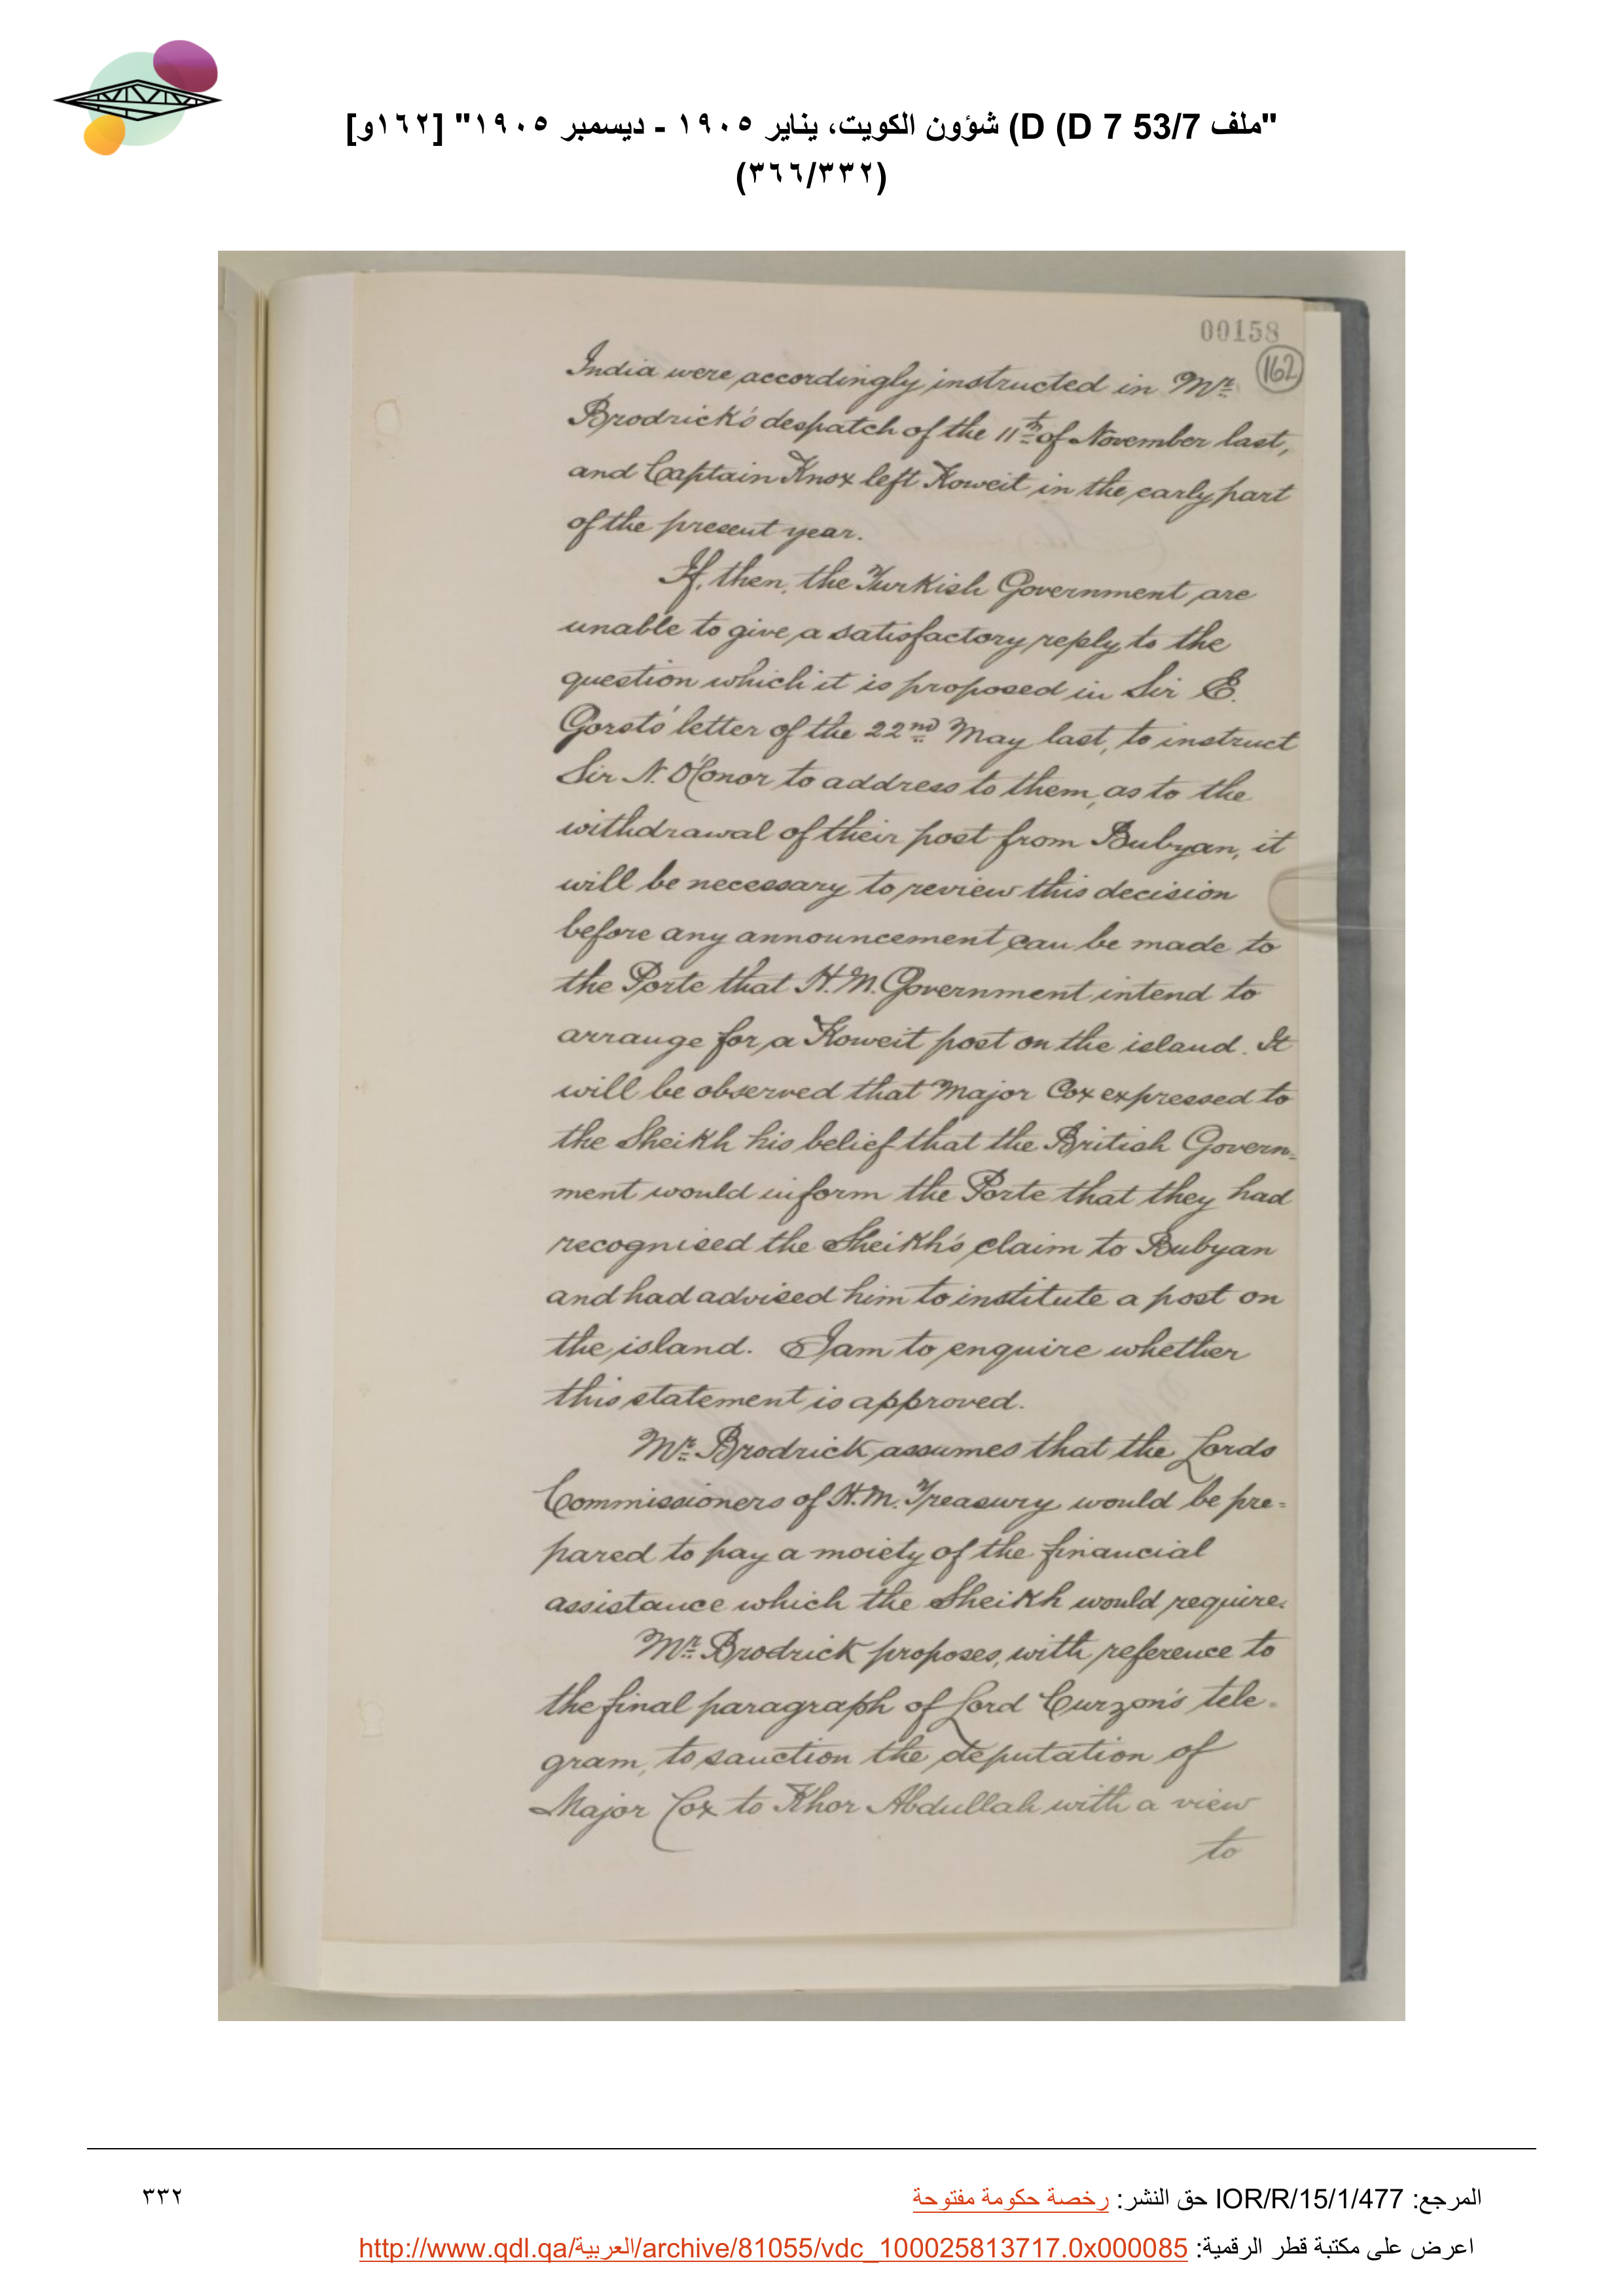 "ملف 53/7 D 7) D) شؤون الكويت، يناير ١٩٠٥ - ديسمبر ١٩٠٥" [١٦٢و]
(٣٦٦/٣٣٢)
00158
162
India were accordingly instructed in Mr.
Brodrick's despatch of the 11th of November last,
and Captain Knox left Koweit in the early part
of the present year.
If, then, the Turkish Government are
unable to give a satisfactory reply to the
question which it is proposed in Sir E.
Gorst's letter of the 22nd May last, to instruct
Sir N. O'Conor to address to them, as to the
withdrawal of their post from Bubyan, it
will be necessary to review this decision
before any announcement can be made to
the Porte that H.M. Government intend to
arrange for a Koweit post on the island. It
will be observed that Major Cox expressed to
the Sheikh his belief that the British Govern-
ment would inform the Porte that they had
recognised the Sheikh's claim to Bubyan
and had advised him to institute a post on
the island. I am to enquire whether
this statement is approved.
Mr. Brodrick assumes that the Lords
Commissioners of H.M. Treasury would be pre-
pared to pay a moiety of the financial
assistance which the Sheikh would require.
Mr. Brodrick proposes, with reference to
the final paragraph of Lord Curzon's tele-
gram, to sanction the deputation of
Major Cox to Khor Abdullah with a view
to
المرجع: IOR/R/15/1/477 حق النشر: رخصة حكومة مفتوحة
٣٣٢
اعرض على مكتبة قطر الرقمية: http://www.qdl.qa/العربية/archive/81055/vdc_100025813717.0x000085